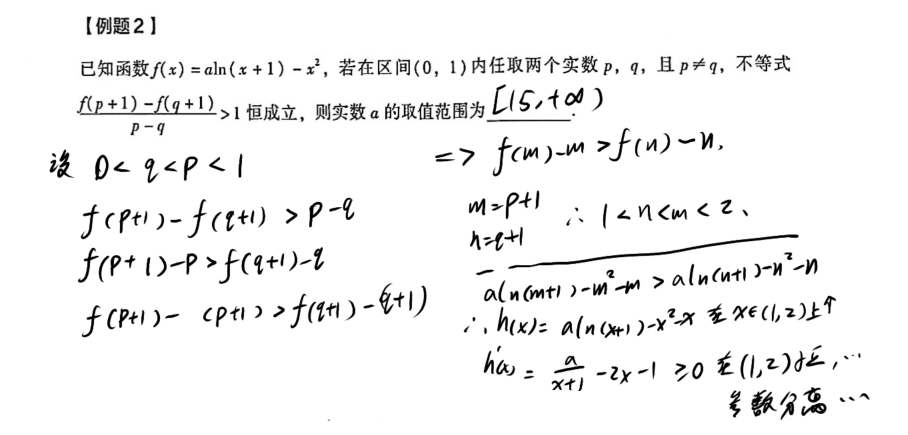 【例题2】
已知函数f(x)=aln(x+1)-x²,若在区间(0,1)内任取两个实数p,q,且p≠q,不等式
f(p+1)-f(q+1)/p-q>1恒成立,则实数a的取值范围为[15,+∞).
设 0<q<p<1
f(p+1)-f(q+1)>p-q
f(p+1)-p>f(q+1)-q
f(p+1)-(p+1)>f(q+1)-(q+1)
=> f(m)-m>f(n)-n,
m=p+1
n=q+1
∴ 1<n<m<2、
aln(m+1)-m²-m>aln(n+1)-n²-n
∴h(x)=aln(x+1)-x²-x 在x∈(1,2)上↑
h'(x)=a/x+1-2x-1≥0在(1,2)上恒,…
参数分离…